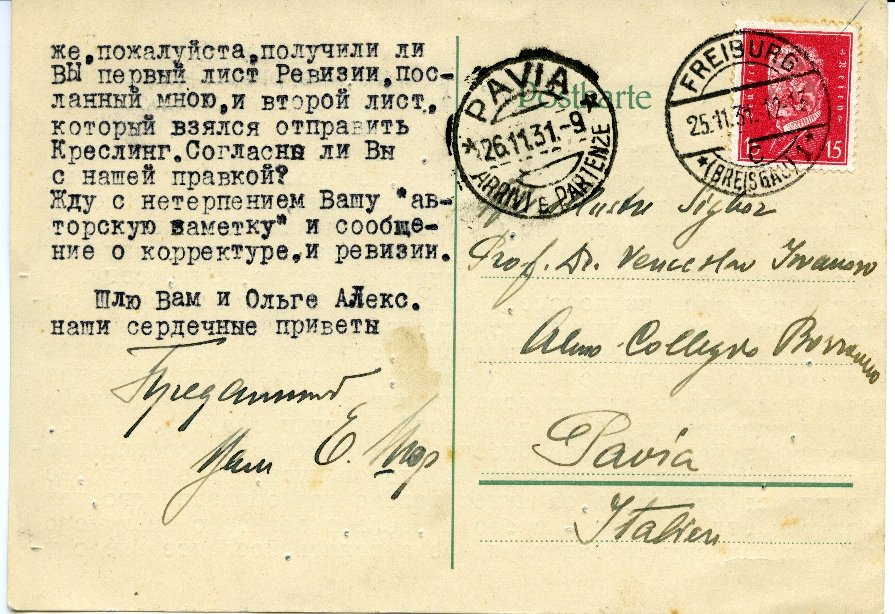 же,пожалуйста,получили ли
ВЫ первый лист Ревизии,пос-
ланный мною,и второй лист,
который взялся отправить
Креслинг.Согласны ли Вы
с нашей правкой?
Жду с нетерпением Вашу "ав-
торскую заметку" и сообще-
ние о корректуре,и ревизии.
Шлю Вам и Ольге АЛекс.
наши сердечные приветы
Преданный
Вам Е. Шор
Postkarte
PAVIA
26.11.31.-9
ARRIVI E PARTENZE
FREIBURG
25.11.31. 12-13
(BREISGAU) 1
15 15
Illustre Signor
Prof. Dr. Venceslav Ivanov
Almo Collegio Borromeo
Pavia
Italien